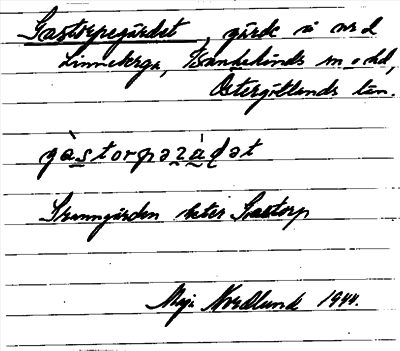 Gastorpegärdet, gärde i n. d.
Linneberga, Hanekinds m. o. hd,
Östergötlands län.
gàstorpəʒàdət
Stamgården heter Gastorp
Maja Nordlund 1944.